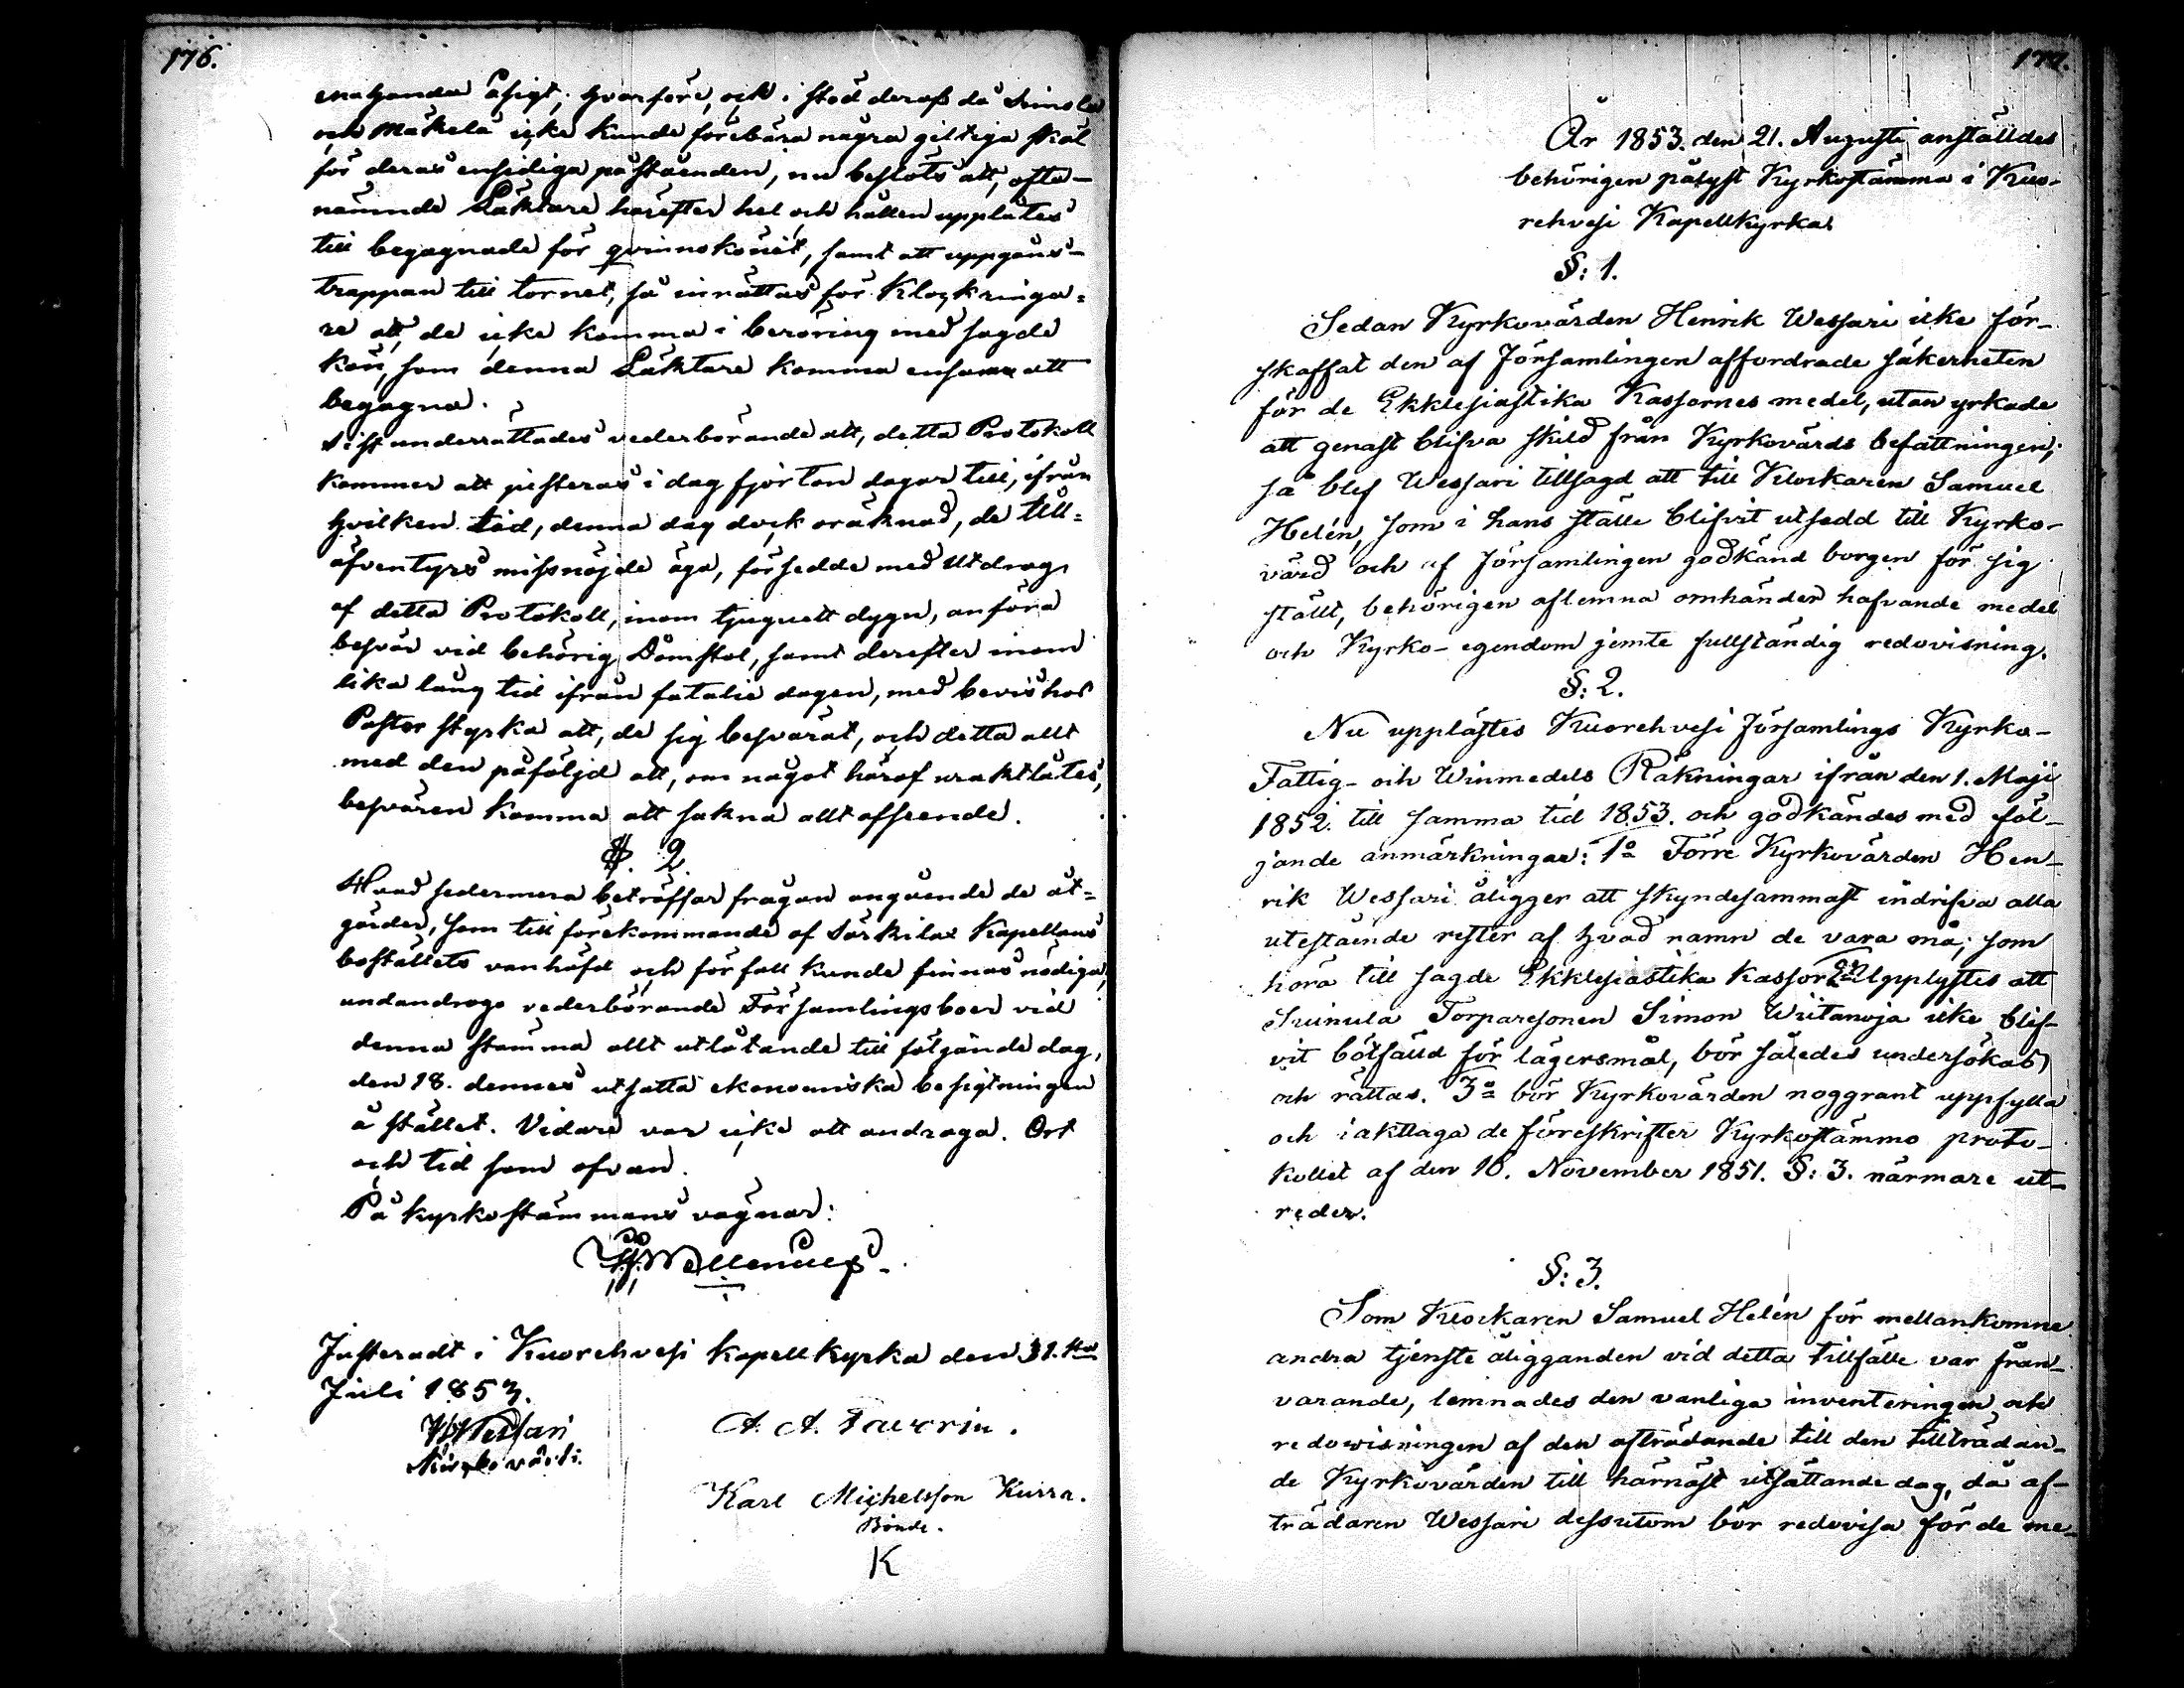 176.
enahanda åsigt; hvarföre, och i stöd deraf då Suinola
och Mäkelä icke kunde förebära några giltiga skäl
för deras ensidiga påståenden, nu beslöts att, ofta-
nämnde Läktare härefter hel och hållen upplåtes
till begagnade för qvinnokönet, samt att uppgångs-
trappan till tornet, så inrättas för Klockringa-
re att de icke komma i beröring med sagde
kön, som denna Läktare komma ensamme att
begagna.
Sist underrättades vederbörande att, detta Protokoll
kommer att justeras i dag fjorton dagar till, ifrån
hvilken tid, denna dag dock oräknad, de till-
äfventyrs missnöjde äga, försedde med Utdrag
af detta Protokoll, inom tjuguett dygn, anföra
besvär vid behörig Domstol, samt derefter inom
lika lång tid ifrån fatalie dagen, med bevis hos
Pastor styrka att, de sig besvärat, och detta allt
med den påföljd att, om något häraf uraktlåtes,
besvären komma att sakna allt afseende.
§. 2.
Hvad sedermera beträffar frågan angående de åt-
gärder, som till förekommande af Särkilax Kapellans
boställets vanhäfd och förfall kunde finnas nödiga,
undandrogo vederbörande Församlingsboer vid
denna stämma allt utlåtande till följande dag,
den 18. dennes utsatta ekonomiska besigtningen
å stället. Vidare var icke att andraga. Ort
och tid som ofvan.
På kyrkostämmans vägnar:
Justeradt i Kuorehvesi kapellkyrka den 31.sta
Juli 1853.
A. A. Favorin.
Karl Michelsson Kurra.
Bonde.
K
177.
År 1853. den 21. Augusti anställdes
behörigen pålyst Kyrkostämma i Kuo-
rehvesi Kapellkyrka.
§: 1.
Sedan Kyrkovärden Henrik Wessari icke för-
skaffat den af Församlingen affordrade säkerheten
för de Ekklesiastika Kassornes medel, utan yrkade
att genast blifva skild från Kyrkovärds befattningen;
så blef Wessari tillsagd att till Klockaren Samuel
Helén, som i hans ställe blifvit utsedd till Kyrko-
värd och af Församlingen godkänd borgen för sig
ställt, behörigen aflemna omhänder hafvande medel
och Kyrko-egendom jemte fullständig redovisning.
§: 2.
Nu upplästes Kuorehvesi Församlings Kyrko-
Fattig- och Winmedels Räkningar ifrån den 1. Maji
1852. till samma tid 1853. och godkändes med föl-
jande anmärkningar: 1o Förre Kyrkovärden Hen-
rik Wessari åligger att skyndesammast indrifva alla
utestående rester af hvad namn de vara må; som
höra till sagde Ekklesiastika kassor 2o Upplystes att
Suinula Torparesonen Simon Wiitanoja icke blif-
vit bötfälld för lägersmål, bör således undersökas
och rättas. 3o bör Kyrkovärden noggrant uppfylla
och iakttaga de föreskrifter Kyrkostämmo proto-
kollet af den 16. November 1851. §: 3. närmare ut-
reder.
§: 3.
Som Klockaren Samuel Helén för mellankomne
andra tjenste åligganden vid detta tillfälle var från-
varande, lemnades den vanliga inventeringen och
redowisningen af den afträdande till den tillträdan-
de Kyrkovärden till härnäst utsättande dag, då af-
trädaren Wessari dessutom bör redovisa för de me-